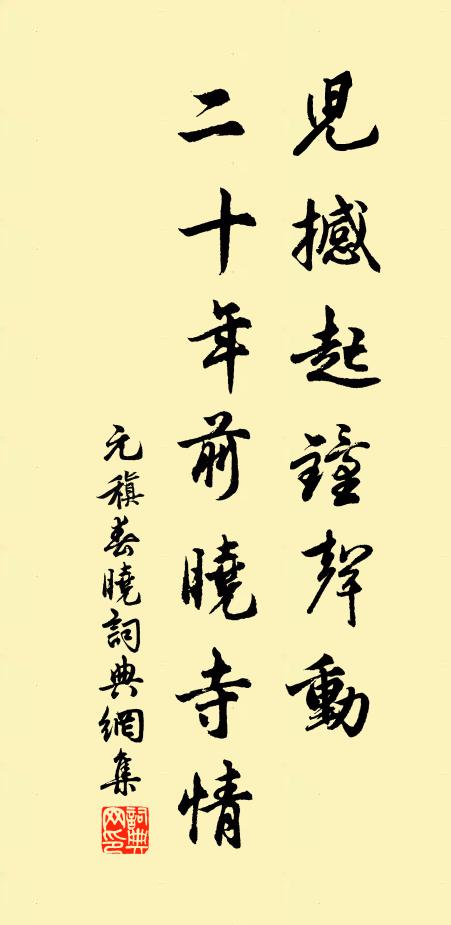 児撼起鐘聲動
二十年前曉寺情
元稹春曉詞典網集
詞典网印